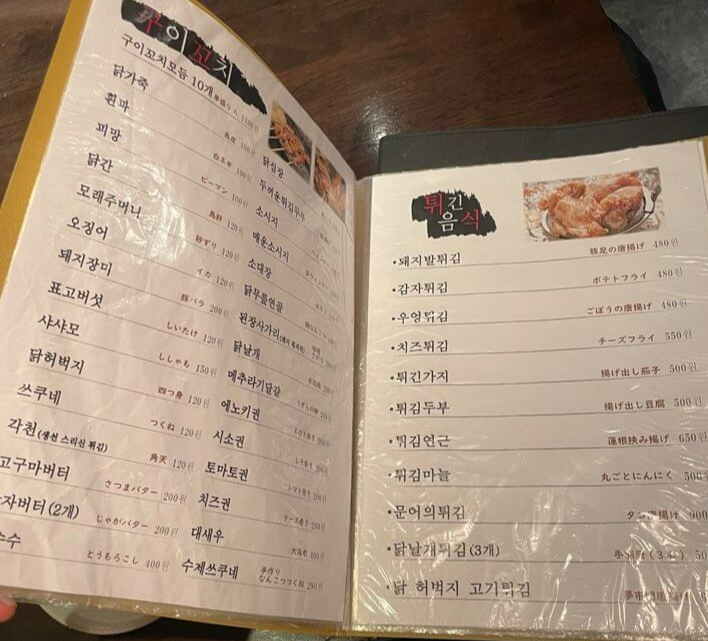 구이꼬치
구이꼬치모듬 10개
닭가죽 鳥皮 100원
흰파 白ネギ 100원
피망 ピーマン 100원
닭간 鳥肝 120원
모래주머니 砂ずり 120원
오징어 イカ 120원
돼지장미 豚バラ 200원
표고버섯 しいたけ 120원
샤샤모 ししゃも 150원
닭허벅지 四つ身 120원
쓰쿠네 つくね 120원
각천(생선 스리신 튀김) 角天 120원
고구마버터 さつまバター 200원
자버터(2개) じゃがバター 200원
とうもろこし 400원
닭심장
두꺼운튀김두부
소시지
매운소시지
소대창
닭무릎연골
된장사가리
닭날개
메추라기달걀
에노키권
시소권
토마토권
치즈권
대새우
수제쓰쿠네 手作りなんこつつくね 280원
튀긴
음식
•돼지발튀김 豚足の唐揚げ 480원
•감자튀김 ポテトフライ 480원
•우엉튀김 ごぼうの唐揚げ 480원
•치즈튀김 チーズフライ 550원
•튀긴가지 揚げ出し茄子 500원
•튀김두부 揚げ出し豆腐 500원
•튀김연근 蓮根挟み揚げ 650원
•튀김마늘 丸ごとにんにく
•문어의튀김
•닭날개튀김(3개)
•닭 허벅지 고기튀김